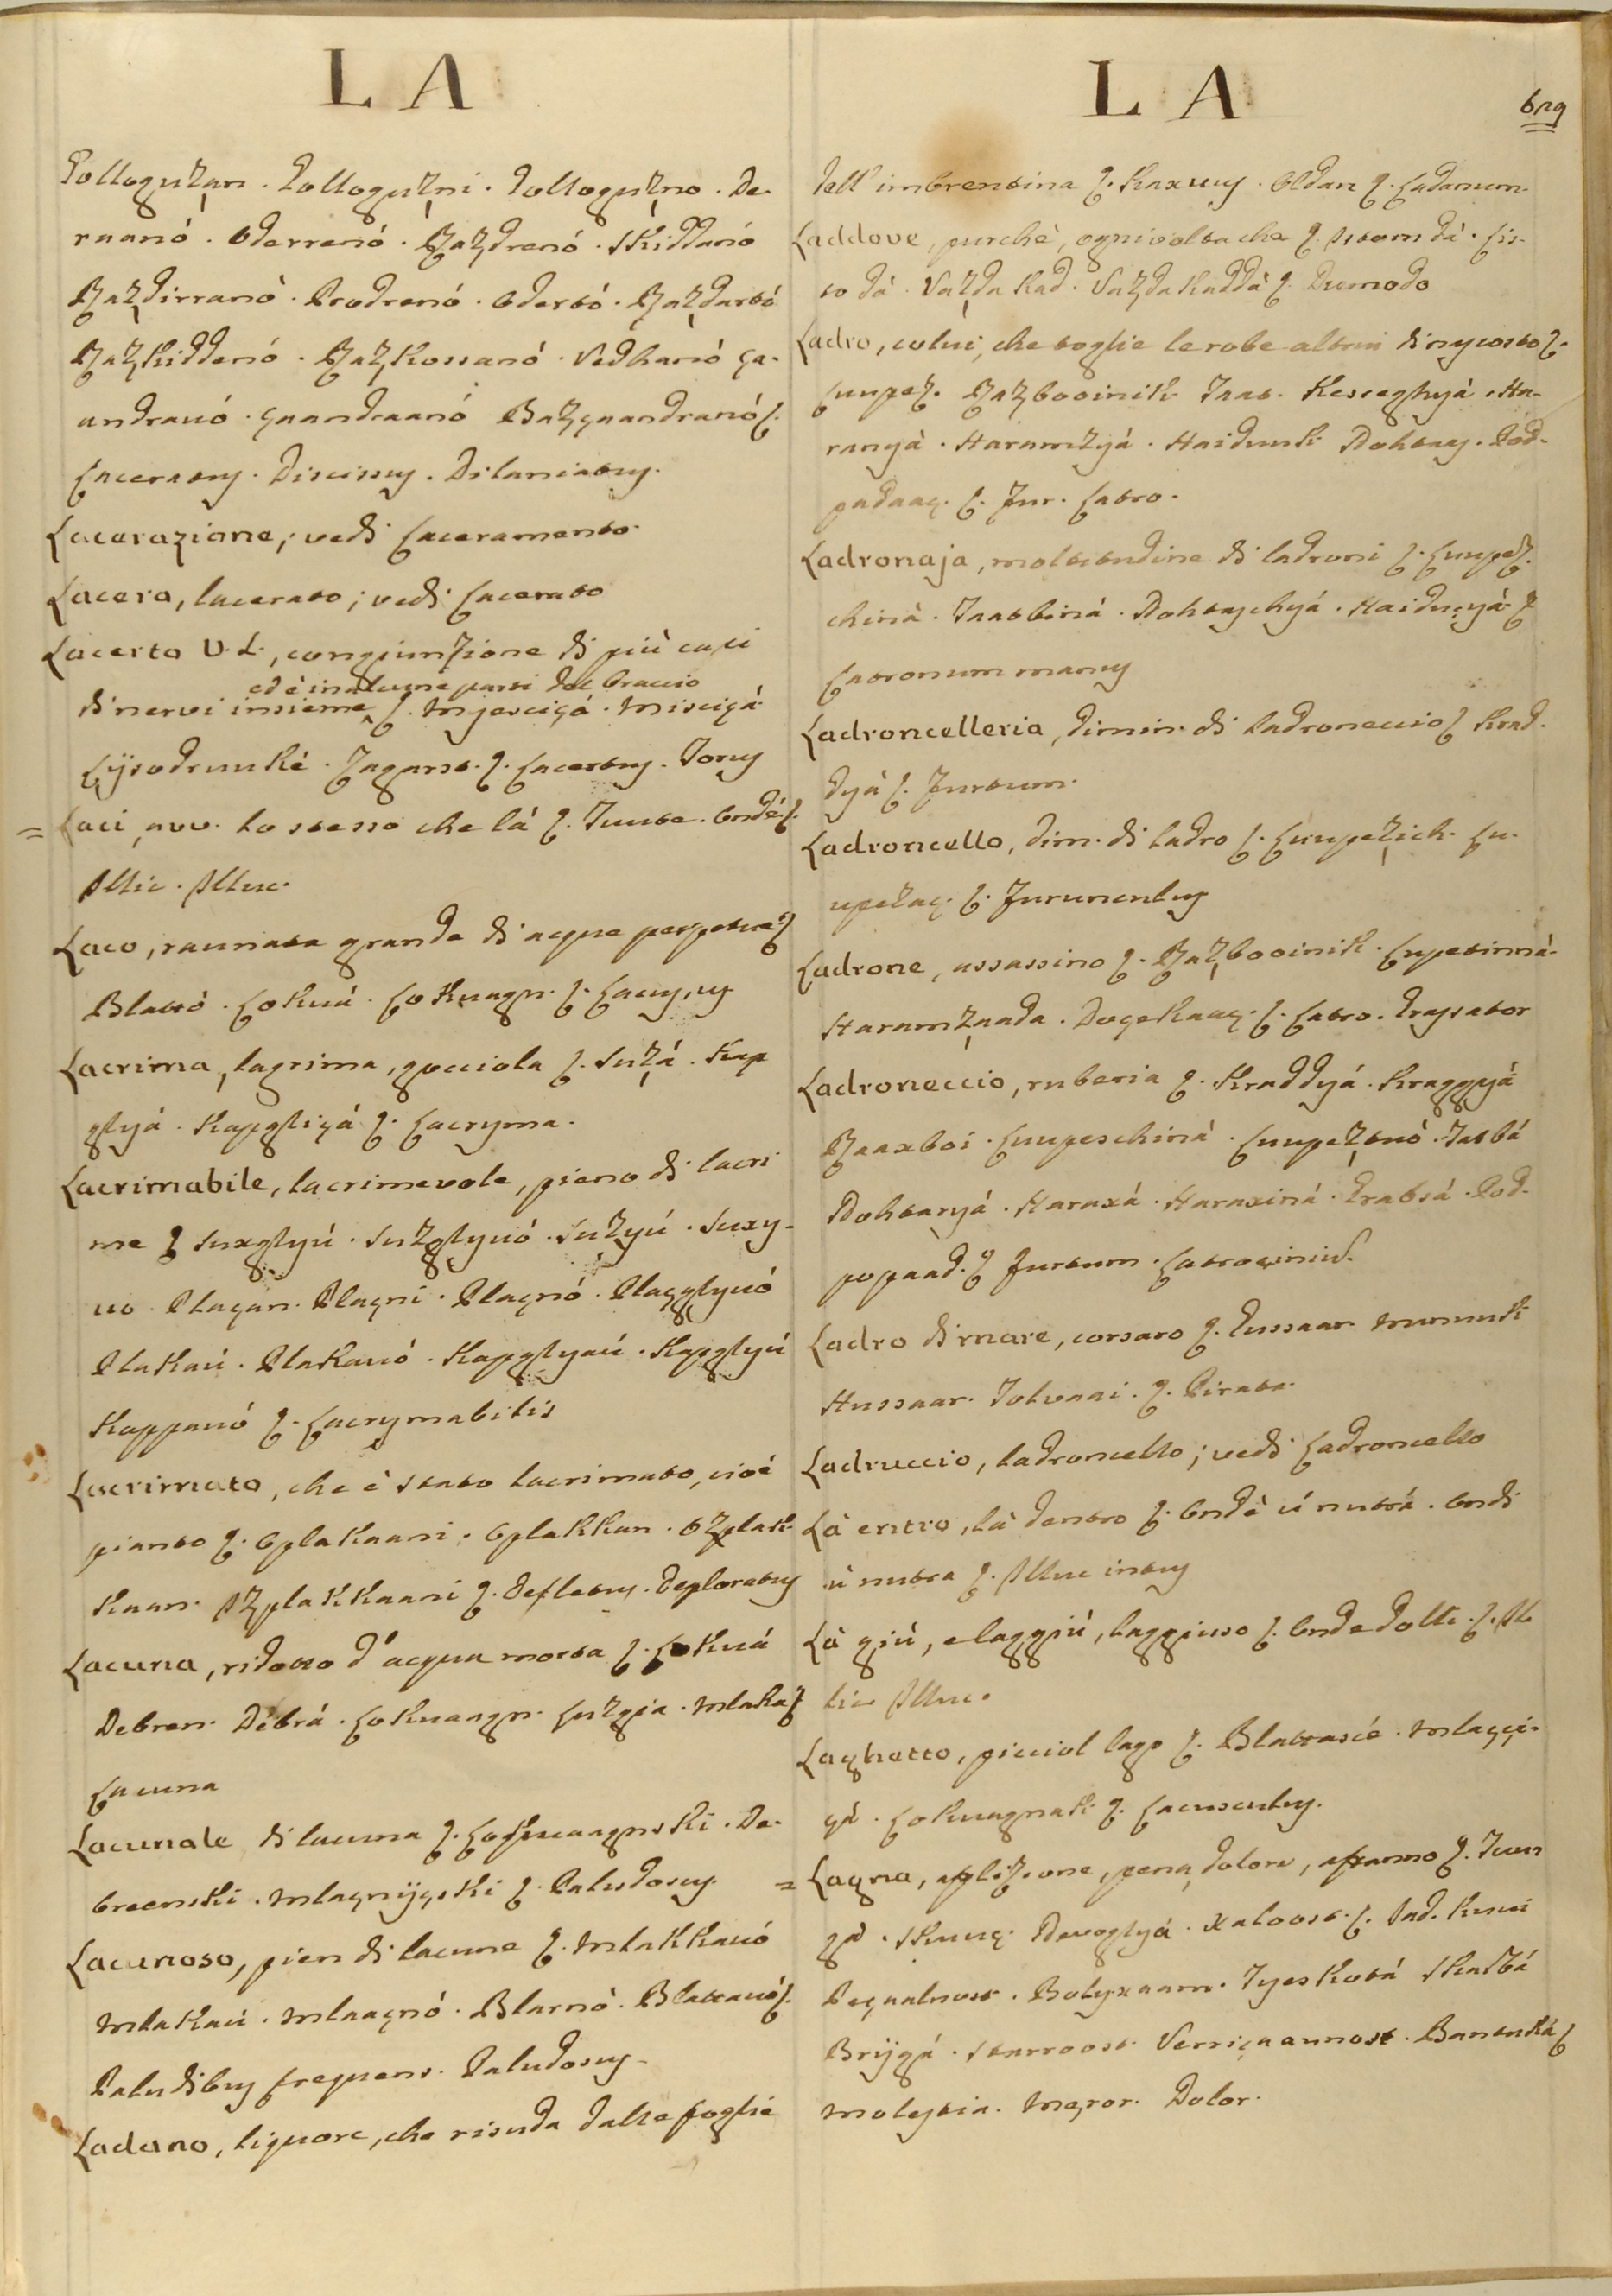 L A
Pollogużan. Pollogużni. Pollogużno. De-
raanó. Oderrenó. Razdrenó. Skiddanó
Razdirranó. Prodrenó. Odertó. Razdartó
Razkiddenó. Razkossanó. Vedhanó ça-
andrauó. çaandraanó Razçaandranó ʃ.
Laceratus. Discissus. Dilaniatus.
Lacerazione, vedi Laceramento.
Lacero, lacerato; vedi Lacerato
Lacerto V.L., congiunzione di più capi
ed è in alcune parti del braccio
di nervi insieme ʃ. Mjesciçá. Misciçá
Lÿsodrunké. Zagarst. ʃ. Lacertus. Torus
= Laci, avv. lo stesso che là ʃ. Tuute. Ondé ʃ.
Illic. Illuc.
Laco, raunata grande di acque perpetue ʃ
Blattó. Lokuá. Lokuagn. ʃ. Lacus, us
Lacrima, lagrima, gocciola ʃ. Suzá. Kap
glyá. Kapgliçá ʃ. Lacryma.
Lacrimabile, lacrimevole, pieno di lacri
me ʃ Suxglyú. Suzglyuó. Suzyú. Suxy-
uo. Plaçan. Plaçni. Plaçnó. Plaçglyuó
Plakaú. Plakauó. Kapglyaú. Kapglyú
Kappauó ʃ. Lacrymabilis
Lacrimato, che è stato lacrimato, cioè
pianto ʃ. Oplakaani. Oplakkan. Ozplak-
kaan. Izplakkaani ʃ. Defletus. Deploratus
Lacuna, ridotto d'acqua morta ʃ. Lokuá
Debren. Debrá. Lokuaagn. Luzgia. Mlaka ʃ
Lacuna
Lacunale di lacuna ʃ. Lokuaagnski. De-
breenski. Mlaçnÿçski ʃ. Paludosus.
Lacunoso, pien di lacune ʃ. Mlakkauó
Mlakaú. Mlaaçnó. Blarnó. Blattauó ʃ.
Paludibus frequens. Paludosus.
Ladano, liquore, che risuda dalle foglie
L A
629
dell'imbrentina ʃ. Kaxuuy. Oldan ʃ. Ladanum.
Laddove, purchè, ognivolta che ʃ. Istom dá. Lis-
to dá. Vazda kad. Vazda kaddá ʃ. Dummodo
Ladro, colui, che toglie le robe altrui di nascosto ʃ.
Luupez. Razbooinik. Taat. Kesceghyá. Ha-
ranyá. Haramzyá. Haiduuk. Dohtay. Pod-
padaaç. ʃ. Fur. Latro.
Ladronaja, moltitudine di ladroni ʃ. Luupez-
chiná. Taatbiná. Dohtaychyá. Haiduçyá ʃ
Latronum manus
Ladroncelleria, dimin. di ladroneccio ʃ Krad-
dyá ʃ. Furtum.
Ladroncello, dim. di ladro ʃ. Luupezich. Lu-
upezaç. ʃ. Furunculus
Ladrone, assassino ʃ. Razbooinik. Lupetinná.
Haramzaada. Doçekaaç. ʃ. Latro. Grassator
Ladroneccio, ruberia ʃ. Kraddyá. Kraggyá
Raaxboi. Luupeschiná. Luupeztuó. Tatbá
Dohtaryá. Haraxá. Haraxiná. Grabsá. Pod-
popaad. ʃ Furtum. Latrocinium.
Ladro di mare, corsaro ʃ. Gussaar. Murnuuk
Hussaar. Tolvaai. ʃ. Pirata.
Ladruccio, ladroncello; vedi Ladroncello
Là entro, là dentro ʃ. Ondé ú nutrá. Ondi
ú nutra ʃ. Illuc intus
Là giù, e laggiù, laggiuso ʃ. Onde dolli. ʃ. Il-
lic Illuc.
Laghetto, picciol lago ʃ. Blattascé. Mlaççi-
çá. Lokuagnak ʃ. Lacusculus.
= Lagna, afflizione, pena, dolore, affanno ʃ. Tuun
ga. Skuuç. Nevoglyá. Xaloost. ʃ. Jad. Kuuci
Peçaalnost. Bolyxaam. Tyeskobá Skarbá
Brÿgá. Starroost. Verriçaaunost. Bantuká ʃ
Molestia. Meror. Dolor.